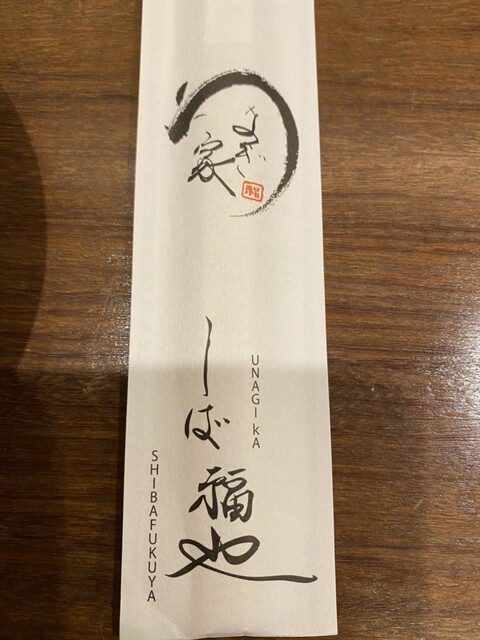 うなぎ
家
UNAGI kA
しば福也
SHIBAFUKUYA